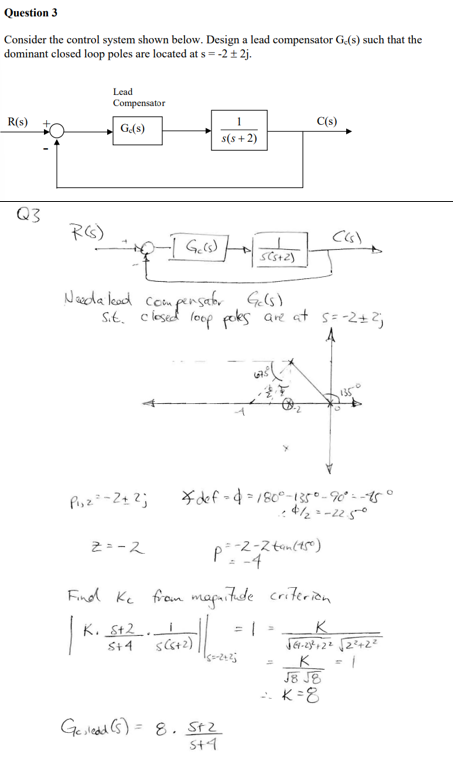 Question 3
Consider the control system shown below. Design a lead compensator Gc(s) such that the
dominant closed loop poles are located at s = -2 ± 2j.
Lead
Compensator
R(s) + - Gc(s) 1 / s(s + 2) C(s)
Q3
R(s) + - Gc(s) 1 / s(s+2) C(s)
Need a lead compensator Gc(s)
s.t. closed loop poles are at s = -2 ± 2j
67.5°
135°
-2
P1,2 = -2 ± 2j ∡ def = ϕ = 180° - 135° - 90° = -45°
∴ ϕ/2 = -22.5°
z = -2 p = -2 - 2 tan(45°)
= -4
Find Kc from magnitude criterion
| K. s+2 / s+4 . 1 / s(s+2) | |s=-2+2j = 1 = K / √(4-2)²+2² √2²+2²
= K / √8 √8 = 1
∴ K = 8
Gc,lead(s) = 8 . s+2 / s+4